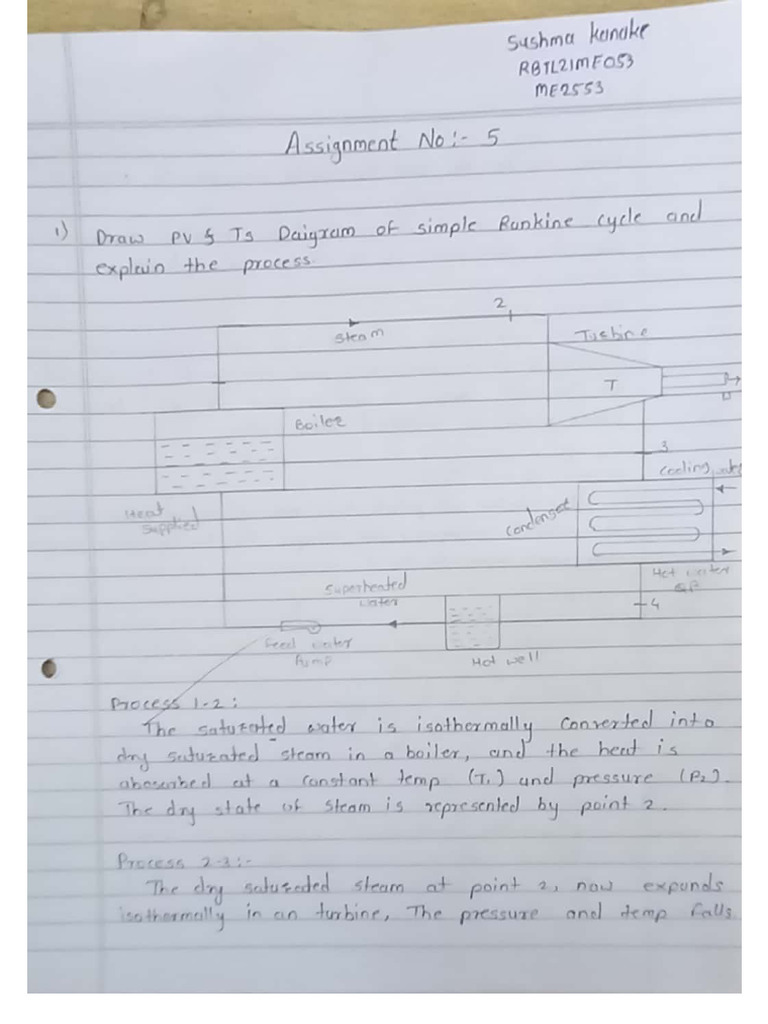 Sushma Kanake
RBTL21ME053
ME2553
Assignment No :- 5
1) Draw PV & Ts Daigram of simple Rankine cycle and
explain the process.
2
Steam
Turbine
T
Boiler
3
cooling
Heat
Supplied
Condenser
Hot water
Superheated
water
4
feed water
Pump
Hot well
Process 1-2 :
The saturated water is isothermally converted into
dry saturated steam in a boiler, and the heat is
at a constant temp (T₁) and pressure (P₂).
The dry state of steam is represented by point 2.
Process 2-3 :-
The dry steam at point 2, now expands
isothermally in an turbine, The pressure and temp falls